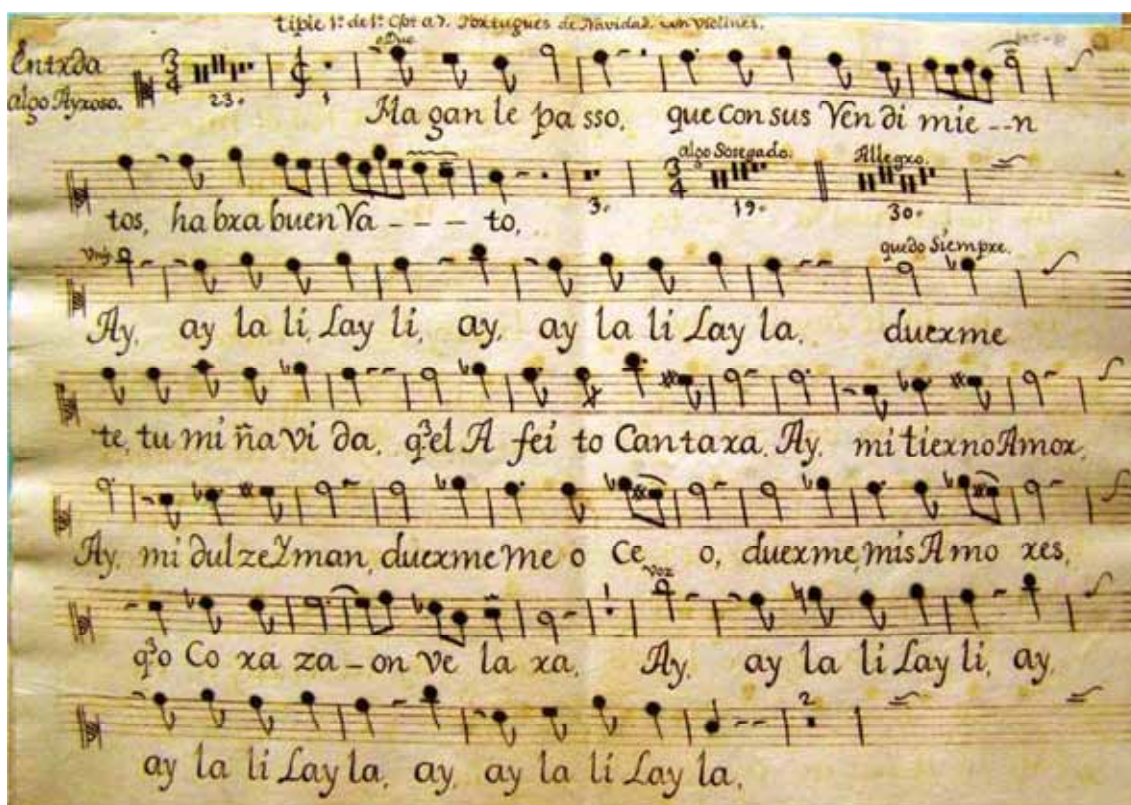 tiple 1º de 1º Cºº a 7. Portugues de Navidad. con violines.
Entrda algo Ayroso. 3/4 23. 1 a Duo
Hagan le pa sso, que con sus Ven di mie -- n
algo Sosegado. Allegro.
3. 3/4 19. 30.
tos, ha bra buen Va - - - to,
quedo Siempre.
Ay, ay la li, Lay li, ay, ay la li Lay la, duerme
te, tu mi ña vi da, q̃ el A fei to Cantara, Ay, mi tierno Amor,
Ay, mi dulze Yman, duerme me o Ce o, duerme, mis Amo res,
Voz
q̃ o Co ra za - on ve la ra, Ay, ay la li Lay li, ay,
2
ay la li Lay la, ay, ay la li Lay la,